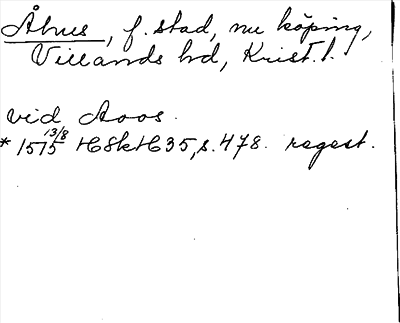 Åhus, f. stad, nu köping,
Villands hd, Krist. l.
vid Aoos.
* 1515 13/8 HSkH 35, s. 478. regest.